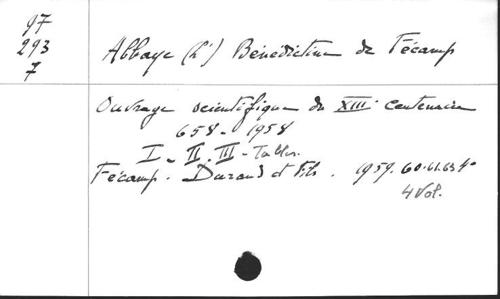 97
293
7
Abbaye (L') Bénédictine de Fécamp
Ouvrage scientifique du XIIIe centenaire
658-1958
I_II_III-Tables.
Fécamp. Durand et Fils. 1959.60.61.63 4°
4 Vol.